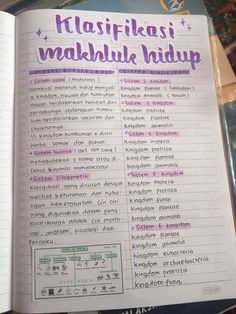 Klasifikasi
makhluk hidup
• Sistem alami (Aristoteles)
membagi makhluk hidup menjadi
2 kingdom, hewan dan tumbuhan
Hewan berdasarkan habitat dan
perilakunya sedangkan tumbuh
kan berdasarkan ukuran dan
strukturnya
kingdom tumbuhan = divisi
herba semak dan pohon
• Sistem buatan (Carl Von Linne)
menggunakan 2 nama atau di
sebut binomial nomenklatur
• Sistem Filogenetik
klasifikasi yang disusun dengan
melihat keturunan dan hubu
ngan kekerabatan. Ciri ciri
yang digunakan dalam peng
klasifikasian adalah ciri morfo
logi, anatomi, fisiologi dan
Perilaku
• Sistem 2 kingdom
kingdom plantae (tumbuhan)
kingdom animalia (hewan)
• Sistem 3 kingdom
kingdom protista
kingdom plantae
kingdom animalia
• Sistem 4 kingdom
kingdom monera
kingdom protista
kingdom plantae
kingdom animalia
• Sistem 5 kingdom
kingdom monera
kingdom protista
kingdom fungi
kingdom plantae
kingdom animalia
• Sistem 6 kingdom
kingdom plantae
kingdom animalia
kingdom eubacteria
kingdom archaebacteria
kingdom protista
kingdom fungi